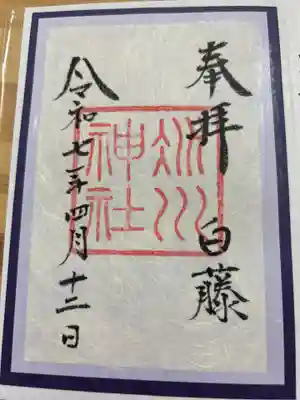 奉拝 白藤
川
神社
令和七年四月十二日